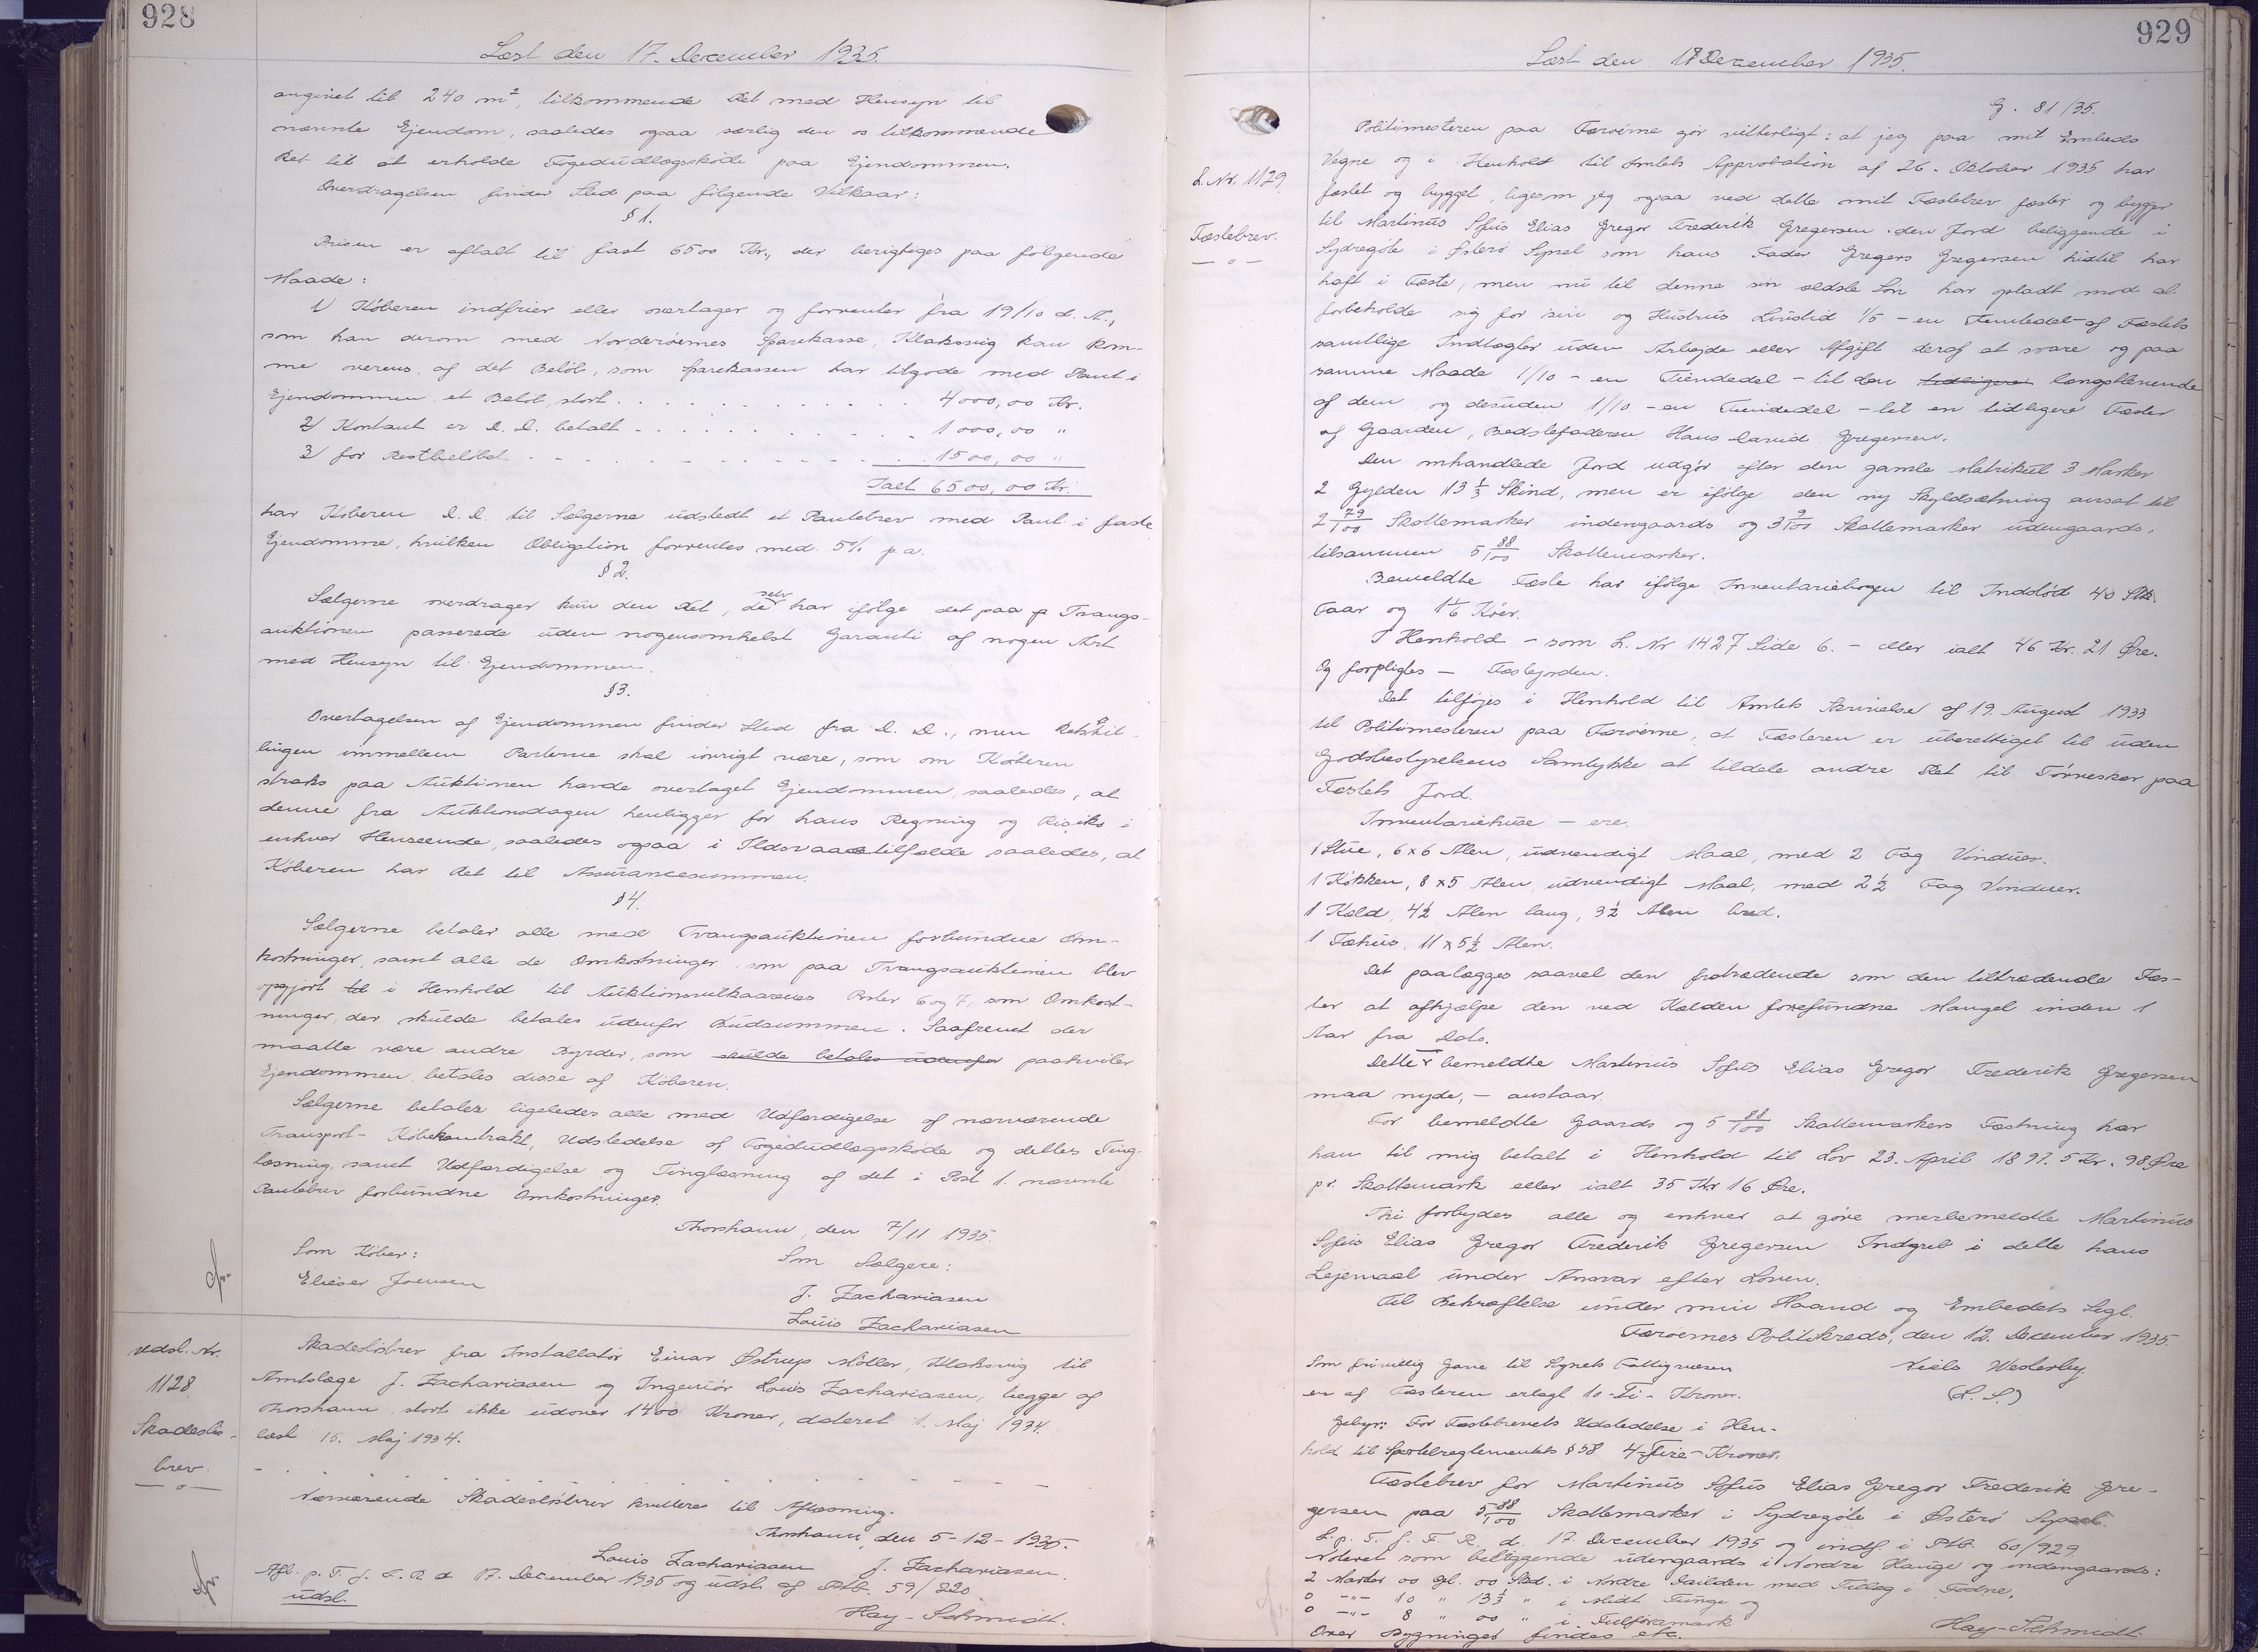 928
Læst den 17. December 1935.
angivet til 240 m², tilkommende Ret med Hensyn til
nævnte Ejendom, saaledes ogsaa særlig den os tilkommende
Ret til at erholde Fogedudlægsskøde paa Ejendommen.
Overdragelsen finder Sted paa følgende Vilkaar:
§ 1.
Prisen er aftalt til fast 6500 Kr., der berigtiges paa følgende
Maade:
1) Køberen indfrier eller overtager og forrenter fra 19/10 d. A.,
som han derom med Norderøernes Sparekasse, Klaksvig kan kom-
me overens, af det Beløb, som Sparekassen har tilgode med Pant i
Ejendommen, et Beløb, stort . . . . . . . . . . 4000,00 Kr.
2) Kontant er D. D. betalt - . . . . . . . . . . 1000,00 "
3) for Restbeløbet. - . . . . . . . . . . 1500,00 "
Ialt 6500,00 Kr.
har Køberen D. D. til Sælgerne udstedt et Pantebrev med Pant i faste
Ejendomme, hvilken Obligation forrentes med 5% p. a.
§ 2.
Sælgerne overdrager kun den Ret, de selv har ifølge det paa Tvangs-
auktionen passerede uden nogensomhelst Garanti af nogen Art
med Hensyn til Ejendommen.
§ 3.
Overtagelsen af Ejendommen finder Sted fra D. D., men Retsstil-
lingen immellem Parterne skal iøvrigt være, som om Køberen
straks paa Auktionen havde overtaget Ejendommen, saaledes, at
denne fra Auktionsdagen henligger for hans Regning og Risiko i
enhver Henseende, saaledes ogsaa i Ildsvaadstilfælde saaledes, at
Køberen har Ret til Assurancesummen.
§ 4.
Sælgerne betaler alle med Tvangsauktionen forbundne Om-
kostninger, samt alle de Omkostninger, som paa Tvangsauktionen blev
opgjort til i Henhold til Auktionsvilkaarenes Poster 6 og 7, som Omkost-
ninger, der skulde betales udenfor Budsummen. Saafremt der
maatte være andre Byrder, som skulde betales udenfor paahviler
Ejendommen, betales disse af Køberen.
Sælgerne betaler ligeledes alle med Udfærdigelse af nærværende
Transport- Købekontrakt, Udstedelse af Fogedudlægsskøde og dettes Ting-
læsning, samt Udfærdigelse og Tinglæsning af det i Post 1. nævnte
Pantebrev forbundne Omkostninger.
Thorshavn, den 7/11 1935.
Som Køber: Som Sælgere:
Elieser Joensen J. Zachariasen
Louis Zachariasen
Udsl. Nr.
1128.
Skadesløs-
brev.
Skadesløsbrev fra Installatør Einar Østrup Møller, Klaksvig til
Amtslæge J. Zachariasen og Ingeniør Louis Zachariasen, begge af
Thorshavn, stort ikke udover 1400 Kroner, dateret 1. Maj 1934,
læst 15. Maj 1934.
Nærværende Skadesløsbrev kvitteres til Aflæsning.
Thorshavn, den 5-12-1935.
Louis Zachariasen J. Zachariasen.
Afl. p. T. f. F. R. d. 17. December 1935 og udsl. af Ptb. 59/220
udsl.
Hay-Schmidt.
929
Læst den 18 December 1935.
L. Nr. 1129.
Fæstebrev.
G. 81/35.
Politimesteren paa Færøerne gør vitterligt: at jeg paa mit Embeds
Vegne og i Henhold til Amtets Approbation af 26. Oktober 1935 har
fæstet og bygget, ligesom jeg ogsaa ved dette mit Fæstebrev fæster og bygger
til Martinus Sofus Elias Gregor Frederik Gregersen den Jord beliggende i
Sydregøte i Østerø Syssel som hans Fader Gregers Gregersen hidtil har
haft i Fæste, men nu til denne sin ældste Søn har opladt mod at
forbeholde sig for sin og Hustrus Livstid 1/5 - en Femtedel - af Fæstets
samtlige Indtægter uden Arbejde eller Afgift deraf at svare og paa
samme Maade 1/10 - en Tiendedel - til den tidligere længstlevende
af dem og desuden 1/10 - en Tiendedel - til en tidligere Fæster
af Gaarden, Bedstefaderen Hans David Gregersen.
Den omhandlede Jord udgør efter den gamle Matrikul 3 Marker
2 Gylden 13 1/3 Skind, men er ifølge den ny Skyldsætning ansat til
2 79/100 Skattemarker indengaards og 3 9/100 Skattemarker udengaards,
tilsammen 5 88/100 Skattemarker.
Bemeldte Fæste har ifølge Inventariebogen til Indstød 40 Stk.
Faar og 1 1/6 Køer.
I Henhold - som L. Nr 1427 Side 6. - eller ialt 46 Kr. 21 Øre.
Og forpligtes - Fæstejorden.
Det tilføjes i Henhold til Amtets Skrivelse af 19. August 1933
til Politimesteren paa Færøerne, at Fæsteren er uberettiget til uden
Godsbestyrelsens Samtykke at tildele andre Ret til Tørveskær paa
Fæstets Jord.
Inventariehuse - ere.
1 Stue, 6 x 6 Alen, udvendigt Maal, med 2 Fag Vinduer.
1 Køkken, 8 x 5 Alen, udvendigt Maal, med 2 1/2 Fag Vinduer.
1 Kæld, 4 1/2 Alen lang, 3 1/2 Alen bred.
1 Fæhus, 11 x 5 1/2 Alen.
Det paalægges saavel den fratrædende som den tiltrædende Fæs-
ter at afhjælpe den ved Kælden forefundne Mangel inden 1
Aar fra Dato.
Dette bemeldte Martinus Sofus Elias Gregor Frederik Gregersen
maa nyde, - anstaar.
For bemeldte Gaards og 5 88/100 Skattemarkers Fæstning har
han til mig betalt i Henhold til Lov 23. April 1897. 5 Kr. 98 Øre
pr. Skattemark eller ialt 35 Kr 16 Øre.
Thi forbydes alle og enhver at gøre merbemeldte Martinus
Sofus Elias Gregor Frederik Gregersen Indgreb i dette hans
Lejemaal under Ansvar efter Loven.
Til Bekræftelse under min Haand og Embedets Segl.
Færøernes Politikreds, den 12. December 1935.
Som frivillig Gave til Sognets Fattigvæsen Niels Westerby.
er af Fæsteren erlagt 10 - Ti - Kroner. (L. S.)
Gebyr: For Fæstebrevets Udstedelse i Hen-
hold til Sportelreglementets § 58 4 - Fire - Kroner.
Fæstebrev for Martinus Sofus Elias Gregor Frederik Gre-
gersen paa 5 88/100 Skattemarker i Sydregøte i Østerø Syssel
L. p. T. f. F. R. d. 17 December 1935 og indf. i Ptb. 60/929
Noteret som beliggende udengaards i Nordre Hauge og indengaards:
2 Marker 00 Gl. 00 Skd. i Nordre Dailden med Tillæg i Tødne,
0 -"- 10 " 13 1/3 " i Midt Tunge og
0 -"- 8 " 00 " i
Over Bygninger findes etc.
Hay-Schmidt